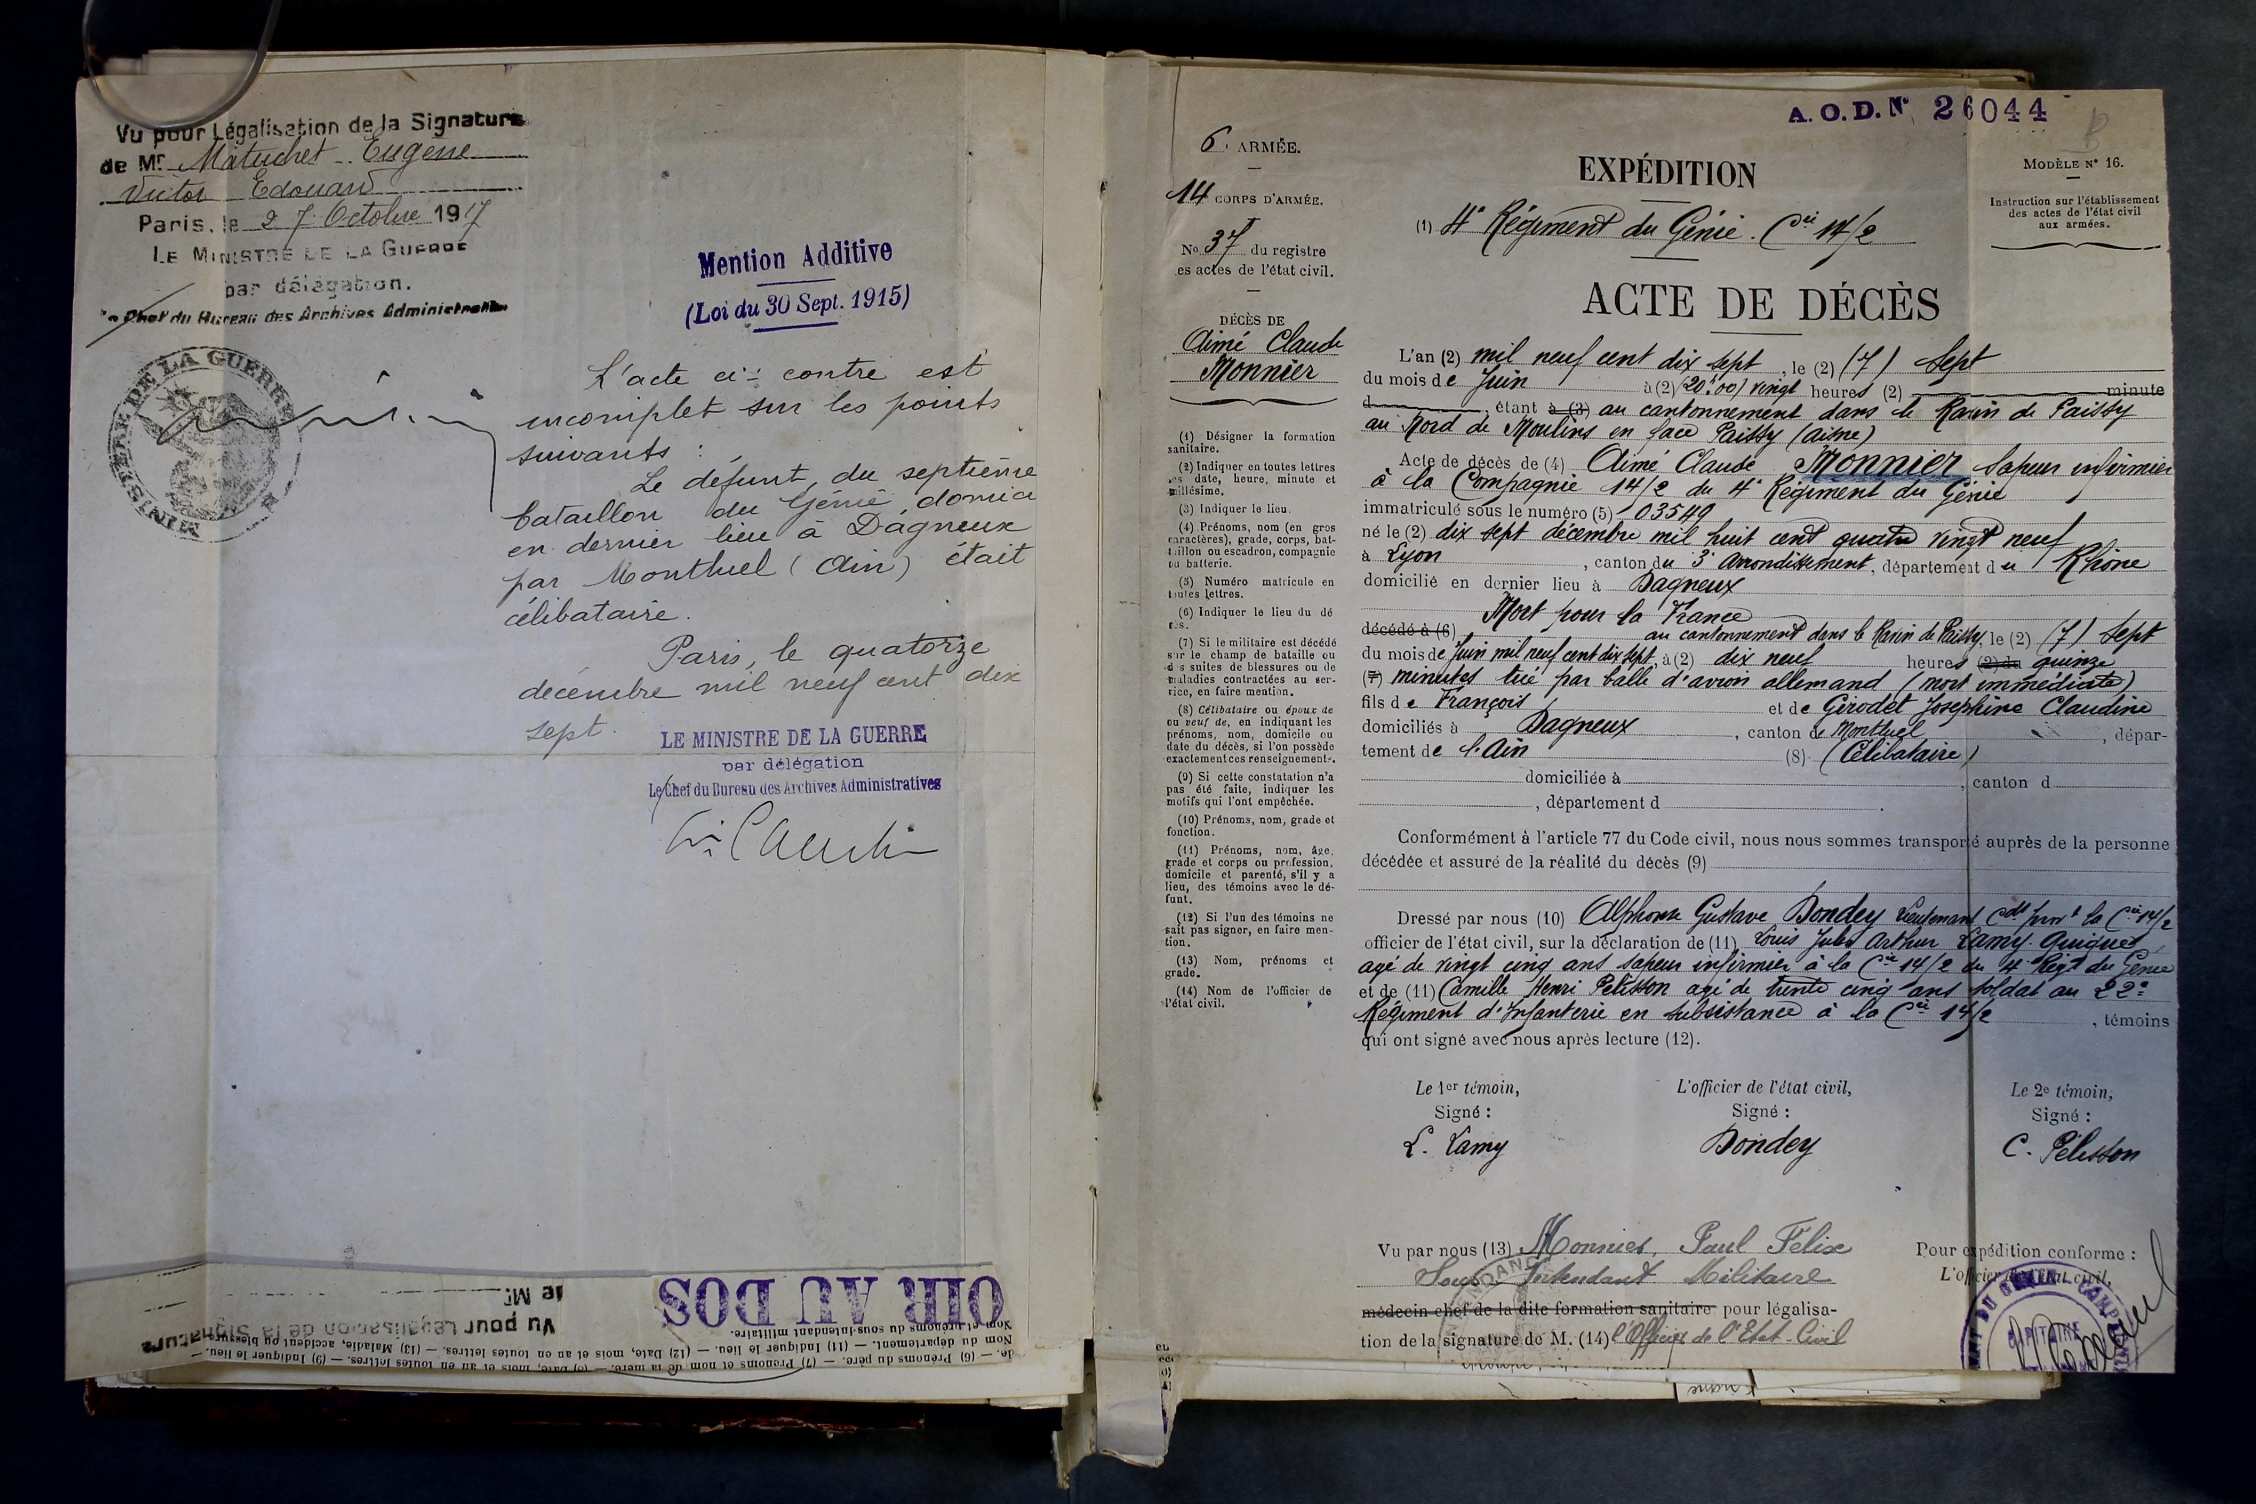 Vu pour Légalisation de la Signature
de Mr. Matuchet Eugène
Victor Edouard
Paris, le 27 Octobre 1917
LE MINISTRE DE LA GUERRE
par délégation.
Le Chef du Bureau des Archives Administratives
MINISTÈRE DE LA GUERRE
Mention Additive
(Loi du 30 Sept. 1915)
L'acte ci-contre est
incomplet sur les points
suivants :
Le défunt, du septième
bataillon du Génie, domicilié
en dernier lieu à Dagneux
par Montluel (Ain) était
célibataire.
Paris, le quatorze
décembre mil neuf cent dix
sept.
LE MINISTRE DE LA GUERRE
par délégation
Le Chef du Bureau des Archives Administratives
OIR AU DOS
Vu pour Légalisation de la Signature
de Mr.
de. — (6) Prénoms du père. — (7) Prénoms et nom de la mère. — (8) Date, mois et an en toutes lettres. — (9) Indiquer le lieu. —
Nom du département. — (11) Indiquer le lieu. — (12) Date, mois et an en toutes lettres. — (13) Maladie, accident ou blessure.
Nom et prénoms du sous-intendant militaire.
A. O. D. N° 26044
6e ARMÉE.
14 CORPS D'ARMÉE.
No 37 du registre
es actes de l'état civil.
DÉCÈS DE
Aimé Claude
Monnier
(1) Désigner la formation
sanitaire.
(2) Indiquer en toutes lettres
les date, heure, minute et
millésime.
(3) Indiquer le lieu.
(4) Prénoms, nom (en gros
caractères), grade, corps, bat-
taillon ou escadron, compagnie
ou batterie.
(5) Numéro matricule en
toutes lettres.
(6) Indiquer le lieu du dé
cès.
(7) Si le militaire est décédé
sur le champ de bataille ou
des suites de blessures ou de
maladies contractées au ser-
vice, en faire mention.
(8) Célibataire ou époux de
ou veuf de, en indiquant les
prénoms, nom, domicile ou
date du décès, si l'on possède
exactement ces renseignements.
(9) Si cette constatation n'a
pas été faite, indiquer les
motifs qui l'ont empêchée.
(10) Prénoms, nom, grade et
fonction.
(11) Prénoms, nom, âge,
grade et corps ou profession,
domicile et parenté, s'il y a
lieu, des témoins avec le dé-
funt.
(12) Si l'un des témoins ne
sait pas signer, en faire men-
tion.
(13) Nom, prénoms et
grade.
(14) Nom de l'officier de
l'état civil.
MODÈLE N° 16.
Instruction sur l'établissement
des actes de l'état civil
aux armées.
EXPÉDITION
(1) 4e Régiment du Génie. Cie 14/2
ACTE DE DÉCÈS
L'an (2) mil neuf cent dix sept, le (2) (7) Sept
du mois de Juin à (2) (20h00) vingt heures (2) minute
d , étant à (3) au cantonnement dans le Ravin de Paissy
au Nord de Moulins en face Paissy (Aisne)
Acte de décès de (4) Aimé Claude Monnier Sapeur infirmier
à la Compagnie 14/2 du 4e Régiment du Génie
immatriculé sous le numéro (5) 03549
né le (2) dix sept décembre mil huit cent quatre vingt neuf
à Lyon, canton du 3e arrondissement, département du Rhône
domicilié en dernier lieu à Dagneux
Mort pour la France
décédé à (6) au cantonnement dans le Ravin de Paissy, le (2) (7) Sept
du mois de Juin mil neuf cent dix sept, à (2) dix neuf heures (2) du quinze
(7) minutes tué par balle d'avion allemand (mort immédiate)
fils de François et de Girodet Joséphine Claudine
domiciliés à Dagneux, canton de Montluel, dépar-
tement de l'Ain (8) (Célibataire)
domiciliée à , canton d
, département d .
Conformément à l'article 77 du Code civil, nous nous sommes transporté auprès de la personne
décédée et assuré de la réalité du décès (9)
Dressé par nous (10) Alphonse Gustave Dondey Lieutenant Cdt provt la Cie 14/2
officier de l'état civil, sur la déclaration de (11) Louis Jules Arthur Lamy-Quique,
agé de vingt cinq ans sapeur infirmier à la Cie 14/2 du 4e Régt du Génie
et de (11) Camille Henri Pélisson agé de trente cinq ans soldat au 22e
Régiment d'Infanterie en subsistance à la Cie 14/2, témoins
qui ont signé avec nous après lecture (12).
Le 1er témoin, L'officier de l'état civil, Le 2e témoin,
Signé : Signé : Signé :
L. Lamy Dondey C. Pélisson
Vu par nous (13) Monnier, Paul Félix
Sous-Intendant Militaire
médecin chef de la dite formation sanitaire pour légalisa-
tion de la signature de M. (14) l'Officier de l'Etat-Civil
Pour expédition conforme :
L'officier de l'état civil,